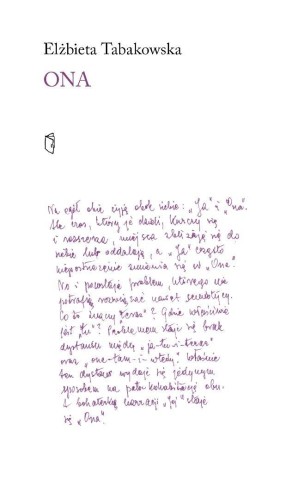 Elżbieta Tabakowska
ONA
Na ogół obie żyją obok siebie: „Ja” i „Ona”.
Ale czas, który je dzieli, kurczy się
i rozszerza, miejsca zbliżają się do
siebie lub oddalają, a „Ja” często
niepostrzeżenie zmienia się w „Ona”.
No i powstaje problem, którego nie
potrafią rozwiązać nawet semiotycy.
Co to znaczy „teraz”? Gdzie właściwie
jest „tu”? Problemem staje się brak
dystansu między „ja-tu-i-teraz”
oraz „one-tam-i-wtedy”. Właśnie
ten dystans wydaje się jedynym
sposobem na pełną kohabitację obu.
I bohaterką narracji „Ja” staje
się „Ona”.